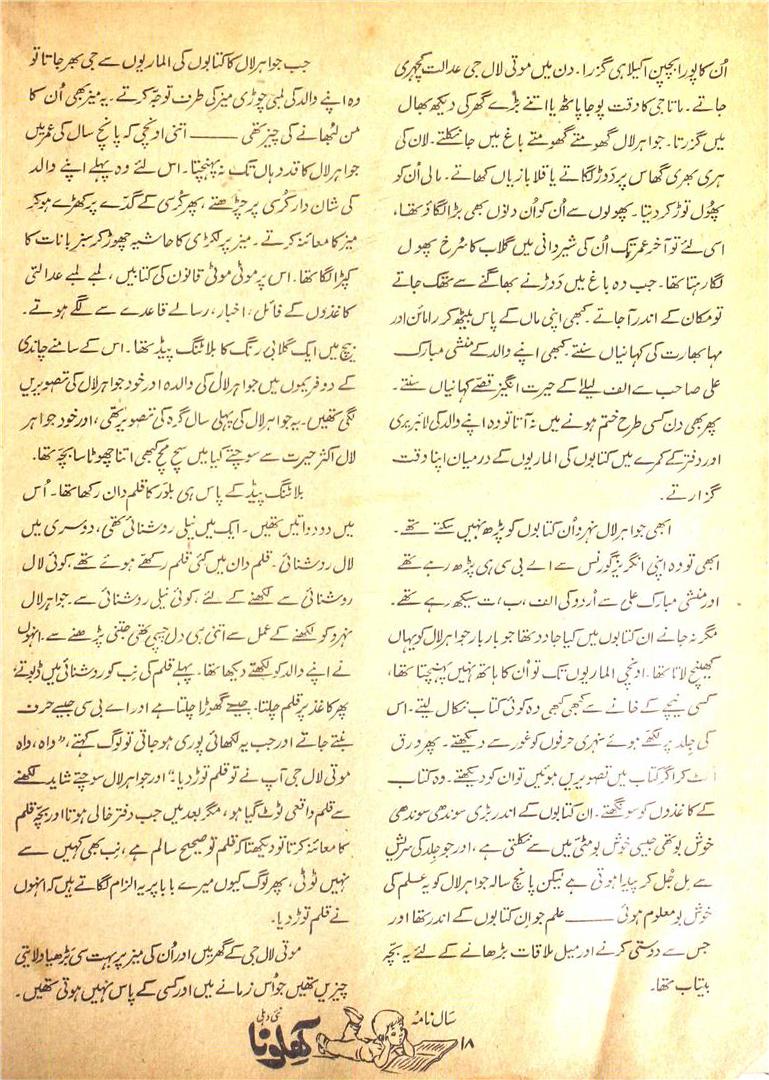 اُن کا پورا بچپن اکیلا ہی گزرا۔ دن میں موتی لال جی عدالت کچہری
جاتے۔ ماتا جی کا وقت پوجا پاٹھ یا اتنے بڑے گھر کی دیکھ بھال
میں گزرتا۔ جواہر لال گھومتے گھومتے باغ میں جا نکلتے۔ لان کی
ہری بھری گھاس پر دَوڑ لگاتے یا قلابازیاں کھاتے۔ مالی اُن کو
پھُول توڑ کر دیتا۔ پھولوں سے اُن کو اُن دِنوں بھی بڑا لگاؤ تھا،
اسی لئے تو آخر عمر تک اُن کی شیروانی میں گلاب کا سُرخ پھول
لگا رہتا تھا۔ جب وہ باغ میں دَوڑنے بھاگنے سے تھک جاتے
تو مکان کے اندر آجاتے۔ کبھی اپنی ماں کے پاس بیٹھ کر رامائن اور
مہا بھارت کی کہانیاں سنتے۔ کبھی اپنے والد کے منشی مبارک
علی صاحب سے الف لیلا کے حیرت انگیز قصے کہانیاں سنتے۔
پھر بھی دن کسی طرح ختم ہونے میں نہ آتا تو وہ اپنے والد کی لائبریری
اور دفتر کے کمرے میں کتابوں کی الماریوں کے درمیان اپنا وقت
گزارتے۔
ابھی جواہر لال نہرو اُن کتابوں کو پڑھ نہیں سکتے تھے۔
ابھی تو وہ اپنی انگریز گورنس سے اے بی سی ہی پڑھ رہے تھے
اور منشی مبارک علی سے اُردو کی الف، ب، ت سیکھ رہے تھے۔
مگر نہ جانے ان کتابوں میں کیا جادو تھا جو بار بار جواہر لال کو یہاں
کھینچ لاتا تھا۔ اونچی الماریوں تک تو اُن کا ہاتھ نہیں پہنچتا تھا،
کسی نیچے کے خانے سے کبھی کبھی وہ کوئی کتاب نکال لیتے۔ اس
کی جِلد پر لکھے ہوئے سنہری حرفوں کو غور سے دیکھتے۔ پھر ورق
اُلٹ کر اگر کتاب میں تصویریں ہوئیں تو ان کو دیکھتے۔ وہ کتاب
کے کاغذوں کو سونگھتے۔ ان کتابوں کے اندر بڑی سوندھی سوندھی
خوش بو تھی جیسی خوش بو مٹی میں سے نکلتی ہے، اور جو جِلد کی سریش
سے مل جُل کر پیدا ہوتی ہے لیکن پانچ سالہ جواہر لال کو یہ علم کی
خوش بو معلوم ہوئی —— علم جو اِن کتابوں کے اندر تھا اور
جس سے دوستی کرنے اور میل ملاقات بڑھانے کے لئے یہ بچّہ
بیتاب تھا۔
جب جواہر لال کا کتابوں کی الماریوں سے جی بھر جاتا تو
وہ اپنے والد کی لمبی چوڑی میز کی طرف توجّہ کرتے۔ یہ میز بھی اُن کا
من لُبھانے کی چیز تھی —— اتنی اونچی کہ پانچ سال کی عمر میں
جواہر لال کا قد وہاں تک نہ پہنچتا۔ اس لئے وہ پہلے اپنے والد
کی شان دار کُرسی پر چڑھتے، پھر کُرسی کے گدّے پر کھڑے ہو کر
میز کا معائنہ کرتے۔ میز پر لکڑی کا حاشیہ چھوڑ کر سبز بانات کا
کپڑا لگا تھا۔ اس پر موٹی موٹی قانون کی کتابیں، لمبے لمبے عدالتی
کاغذوں کے فائل، اخبار، رسالے قاعدے سے لگے ہوتے۔
بیچ میں ایک گلابی رنگ کا بلاٹنگ پیڈ تھا۔ اس کے سامنے چاندی
کے دو فریموں میں جواہر لال کی والدہ اور خود جواہر لال کی تصویریں
لگی تھیں۔ یہ جواہر لال کی پہلی سال گرہ کی تصویر تھی، اور خود جواہر
لال اکثر حیرت سے سوچتے کیا میں سچ مچ کبھی اتنا چھوٹا سا بچّہ تھا۔
بلاٹنگ پیڈ کے پاس ہی بلّور کا قلم دان رکھا تھا۔ اُس
میں دو دواتیں تھیں۔ ایک میں نیلی روشنائی تھی، دوسری میں
لال روشنائی۔ قلم دان میں کئی قلم رکھے ہوئے تھے۔ کوئی لال
روشنائی سے لکھنے کے لئے، کوئی نیلی روشنائی سے۔ جواہر لال
نہرو کو لکھنے کے عمل سے اتنی ہی دل چسپی تھی جتنی پڑھنے سے۔ انہوں
نے اپنے والد کو لکھتے دیکھا تھا۔ پہلے قلم کی نِب کو روشنائی میں ڈبوتے،
پھر کاغذ پر قلم چلتا۔ جیسے گھوڑا چلتا ہے اور اے بی سی جیسے حرف
بنتے جاتے اور جب یہ لکھائی پوری ہو جاتی تو لوگ کہتے، ”واہ، واہ
موتی لال جی آپ نے تو قلم توڑ دیا“ اور جواہر لال سوچتے شاید لکھنے
سے قلم واقعی ٹوٹ گیا ہو، مگر بعد میں جب دفتر خالی ہوتا اور بچّہ قلم
کا معائنہ کرتا تو دیکھتا کہ قلم تو صحیح سالم ہے، نِب بھی کہیں سے
نہیں ٹوٹی، پھر لوگ کیوں میرے بابا پر یہ الزام لگاتے ہیں کہ انہوں
نے قلم توڑ دیا۔
موتی لال جی کے گھر میں اور اُن کی میز پر بہت سی بڑھیا ولایتی
چیزیں تھیں جو اُس زمانے میں اور کسی کے پاس نہیں ہوتی تھیں۔
۱۸
سال نامہ
کھلونا
نئی دہلی